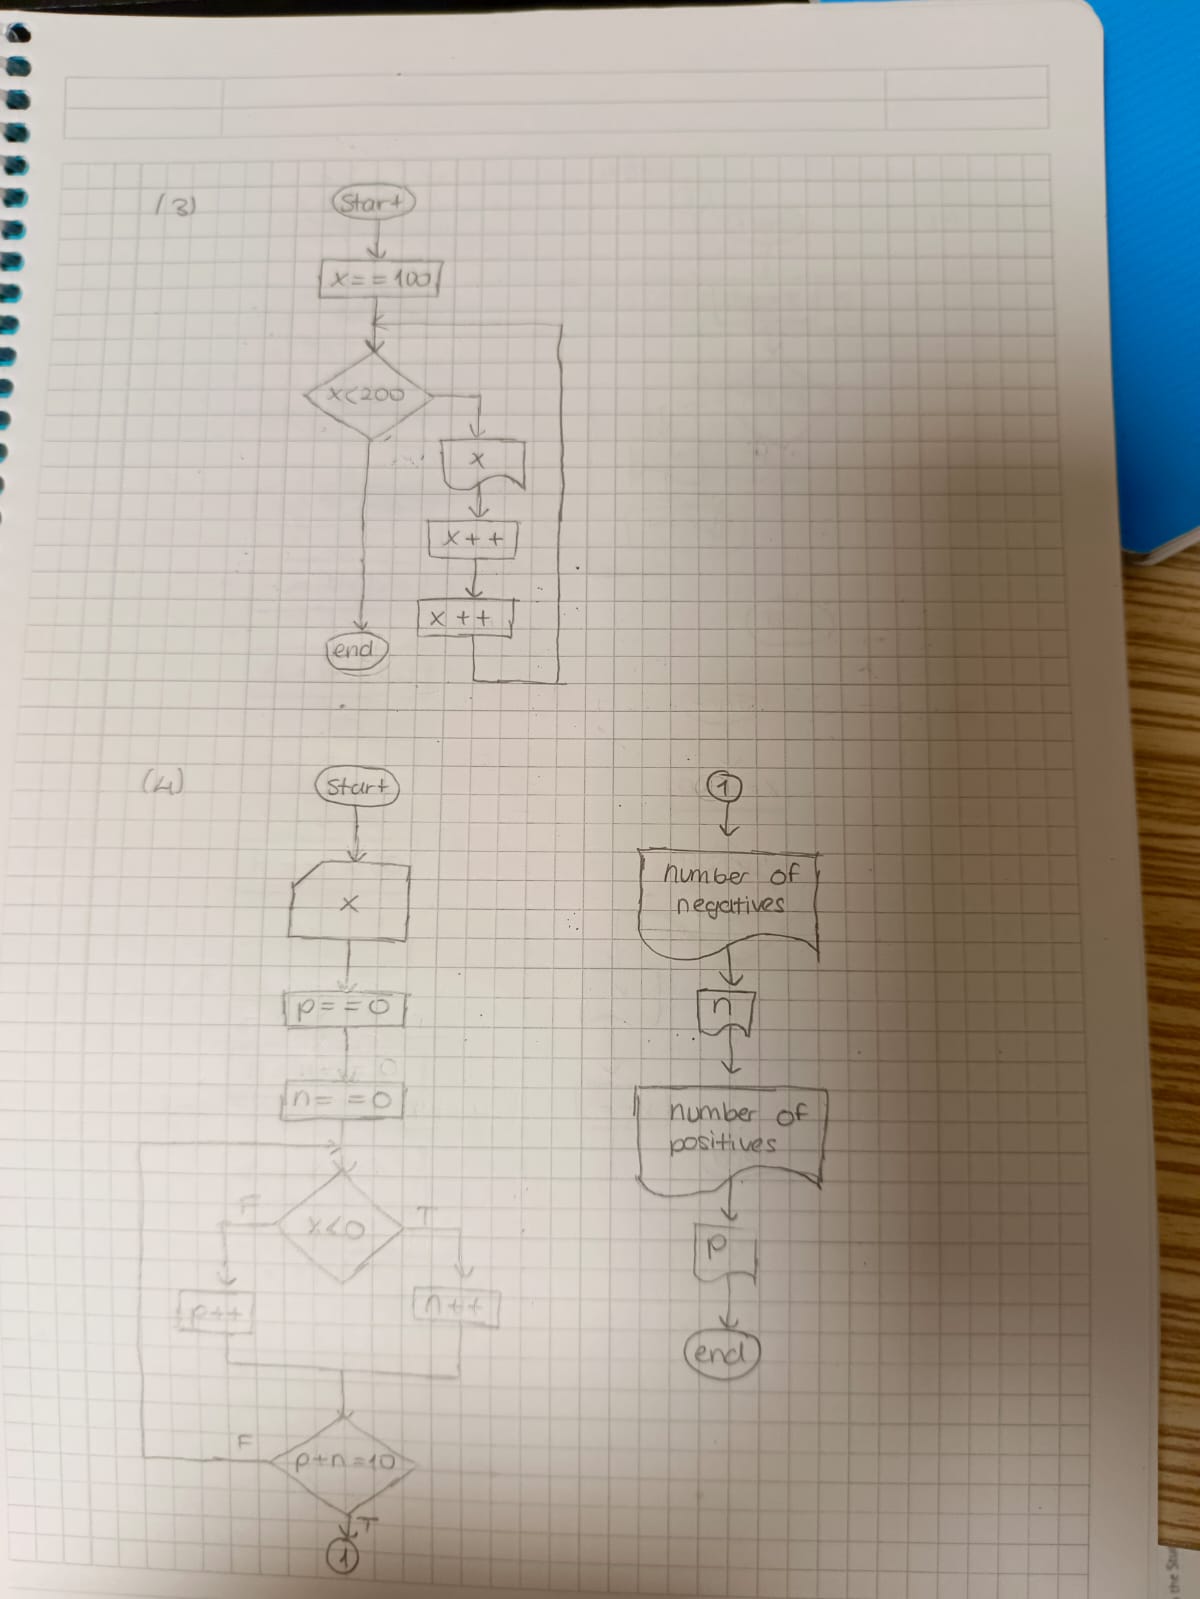 (3)
Start
x==100
x<200
x
x++
x++
end
(4)
Start
x
p==0
n==0
x<0
F
T
p++
n++
p+n=10
F
T
1
1
number of
negatives
n
number of
positives
p
end
the Stu